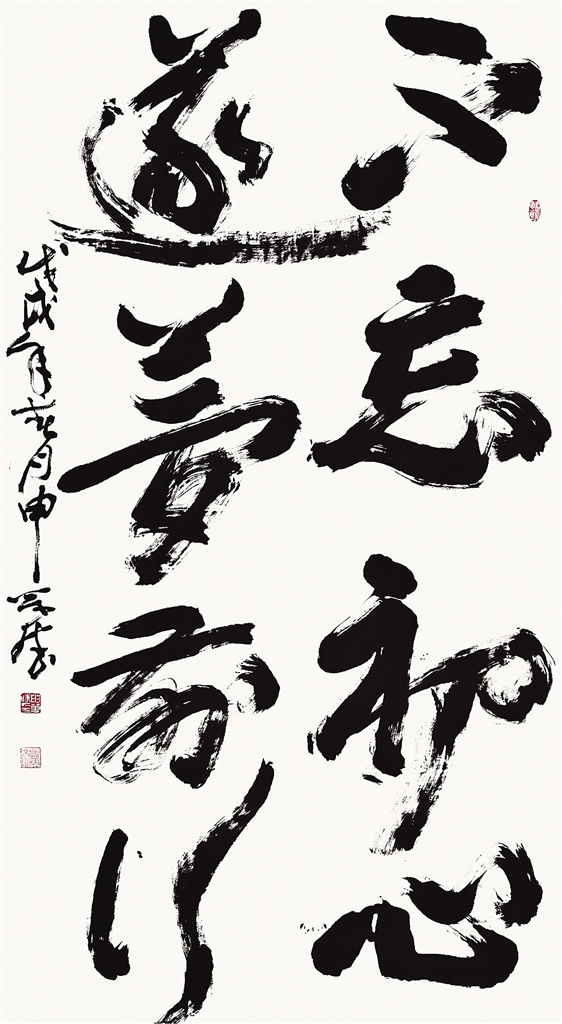 不忘初心
逐梦前行
戊戌年花月申